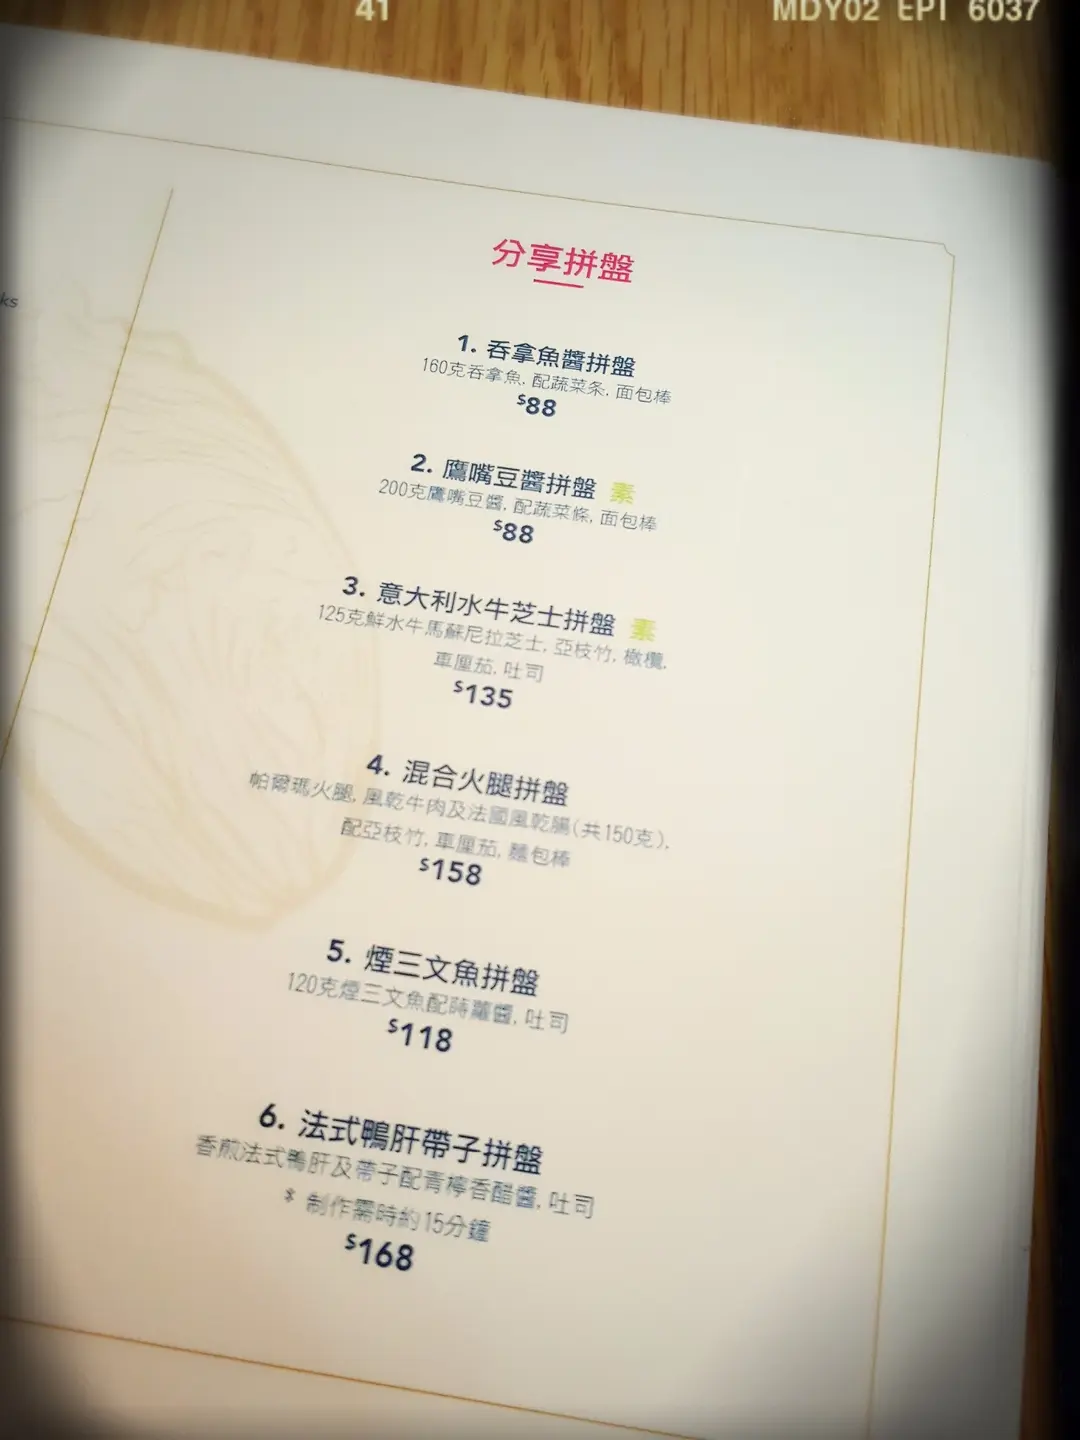 41 MDY02 EPT 6037
ks
分享拼盤
1. 吞拿魚醬拼盤
160克吞拿魚, 配蔬菜条, 面包棒
$88
2. 鷹嘴豆醬拼盤 素
200克鷹嘴豆醬, 配蔬菜條, 面包棒
$88
3. 意大利水牛芝士拼盤 素
125克鮮水牛馬蘇尼拉芝士, 亞枝竹, 橄欖,
車厘茄, 吐司
$135
4. 混合火腿拼盤
帕爾瑪火腿, 風乾牛肉及法國風乾腸(共150克),
配亞枝竹, 車厘茄, 麵包棒
$158
5. 煙三文魚拼盤
120克煙三文魚配蒔蘿醬, 吐司
$118
6. 法式鴨肝帶子拼盤
香煎法式鴨肝及帶子配青檸香醋醬, 吐司
* 制作需時約15分鐘
$168